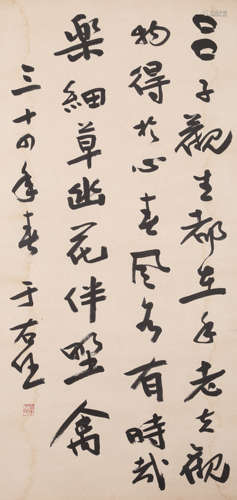 子觀生都在老去觀
物得於心春風有時哉
樂細草幽花伴野禽
三十四年春 于右任